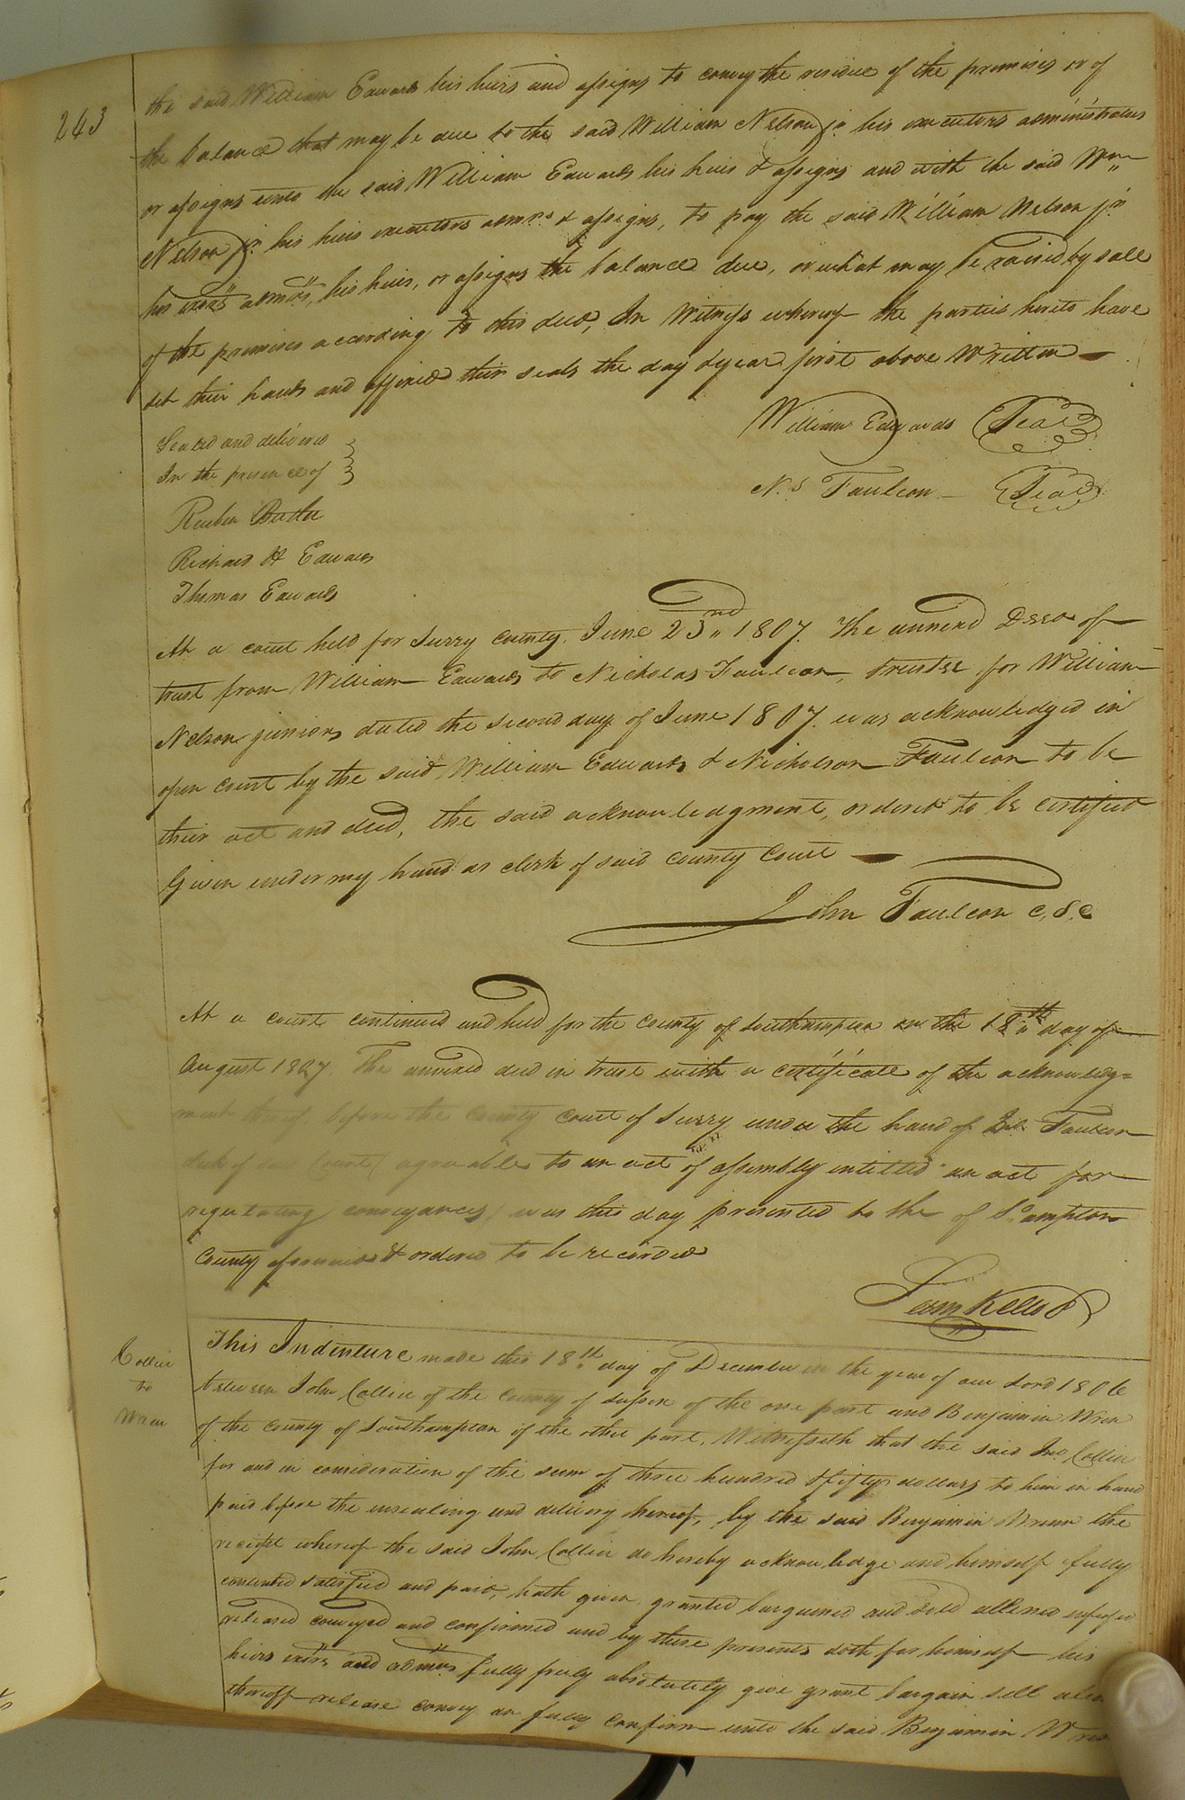 243
the said William Edwards his heirs and assigns to convey the residue of the premises or of
the balance that may be due to the said William Nelson jr. his executors administrators
or assigns unto the said William Edwards his heirs & assigns and with the said Wm
Nelson jr. his heirs executors admrs & assigns, to pay the said William Nelson jr.
his exors admrs, his heirs, or assigns the balance due, or what may be raised by sale
of the premises according to this deed, In Witness whereof the parties hereto have
set their hands and affixed their seals the day & year first above Written
William Edwards Seal
Ns. Faulcon Seal
Sealed and delivered
In the presence of
Reuben Butler
Richard H Edwards
Thomas Edwards
At a court held for Surry county, June 23rd 1807. The annexed Deed of
trust from William Edwards to Nicholas Faulcon, trustee for William
Nelson junior, dated the second day of June 1807. was acknowledged in
open court by the said William Edwards & Nicholson Faulcon to be
their act and deed, the said acknowledgment, ordered to be certified
Given under my hand as clerk of said county Court
John Faulcon C.S.C
At a court continued and held for the County of Southampton on the 18th day of
August 1807 The annexed deed in trust with a certificate of the acknowledg=
ment thereof before the County court of Surry under the hand of Jno. Faulcon
clerk of said Court agreeable to an act of assembly intitled an act for
regulating conveyances, was this day presented to the of So.ampton
County & ordered to be recorded
Saml Kello
Collier
to
Wren
This Indenture made this 18th day of December in the year of our Lord 1806
between John Collier of the county of Sussex of the one part and Benjamin Wren
of the County of Southampton of the other part, Witnesseth that the said Jno. Collier
for and in consideration of the sum of three hundred & fifty dollars to him in hand
paid before the ensealing and delivery hereof, by the said Benjamin Wrenn the
receipt whereof the said John Collier do hereby acknowledge and himself fully
contented satisfied and paid, hath given granted bargained and sold aliened enfeofed
released conveyed and confirmed and by these presents doth for himself his
heirs exors and admrs fully freely absolutely give grant bargain sell
release convey an fully confirm unto the said Benjamin